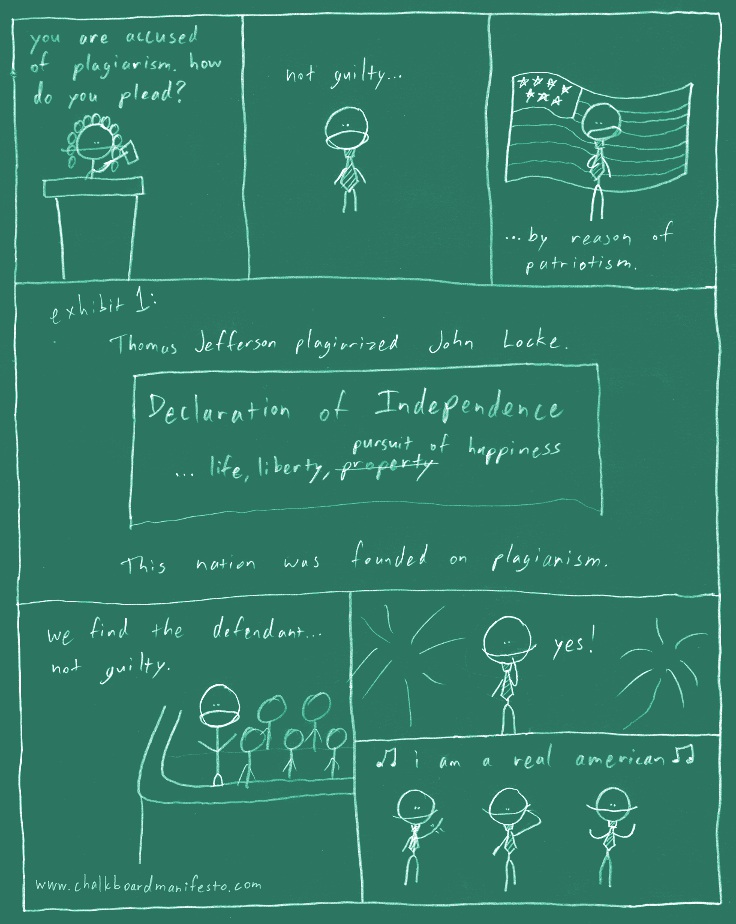 you are accused
of plagiarism. how
do you plead?
not guilty...
...by reason of
patriotism.
exhibit 1:
Thomas Jefferson plagiarized John Locke.
Declaration of Independence
pursuit of happiness
... life, liberty, property
This nation was founded on plagiarism.
we find the defendant...
not guilty.
yes!
♫ i am a real american ♫
www.chalkboardmanifesto.com